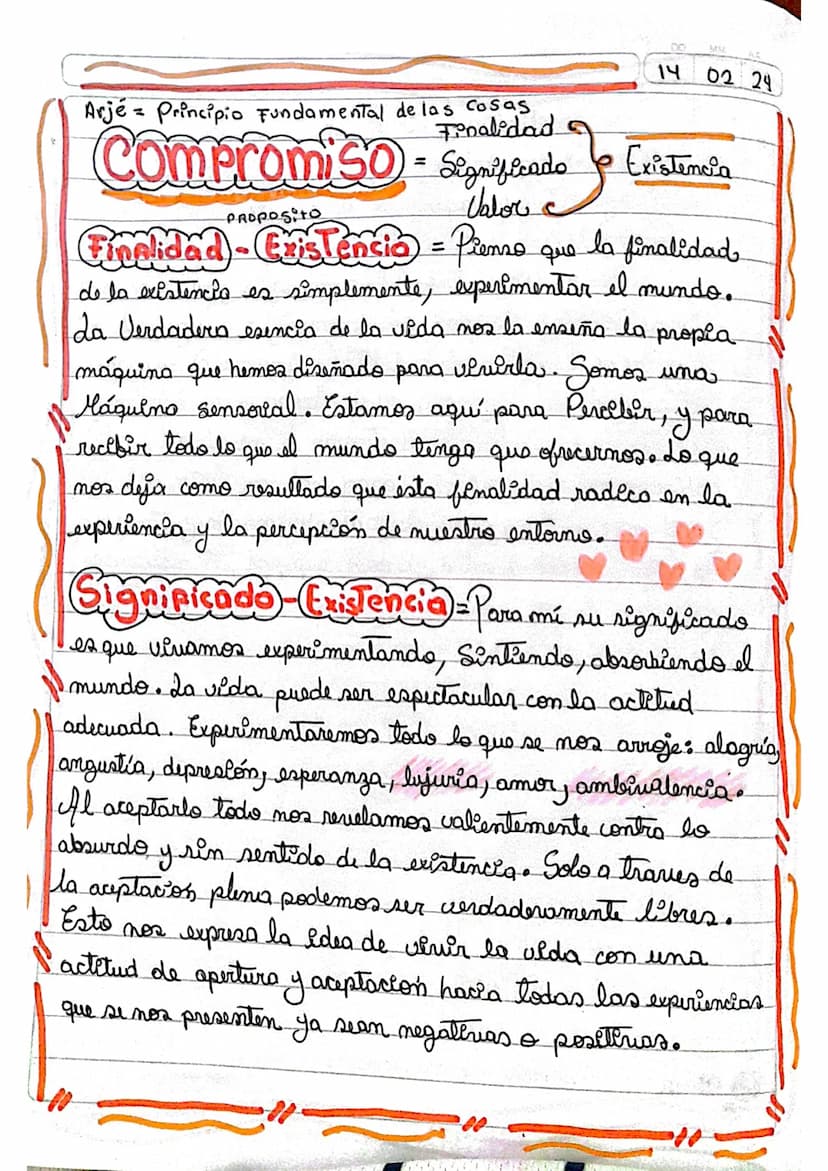 DD MM AA
14 02 24
Arjé = Principio Fundamental de las cosas
Finalidad
COMPROMISO = Significado Existencia
Valor
PROPOSITO
Finalidad - Existencia = Pienso que la finalidad
de la existencia es simplemente, experimentar el mundo.
La Verdadera esencia de la vida nos la enseña la propia
máquina que hemos diseñado para vivirla. Somos una
Máquina sensorial. Estamos aquí para Percibir, y para
recibir todo lo que el mundo tenga que ofrecernos. Lo que
nos deja como resultado que ésta finalidad radica en la
experiencia y la percepción de nuestro entorno.
Significado - Existencia = Para mí su significado
es que vivamos experimentando, Sintiendo, absorbiendo el
mundo. La vida puede ser espectacular con la actitud
adecuada. Experimentaremos todo lo que se nos arroje: alegría,
angustía, depresión, esperanza, lujuria, amor, ambivalencia.
Al aceptarlo todo nos revelamos valientemente contra lo
absurdo y sin sentido de la existencia. Solo a traves de
la aceptación plena podemos ser verdaderamente libres.
Esto nos expresa la idea de vivir la vida con una
actitud de apertura y aceptación hacia todas las experiencias
que se nos presenten ya sean negativas o positivas.